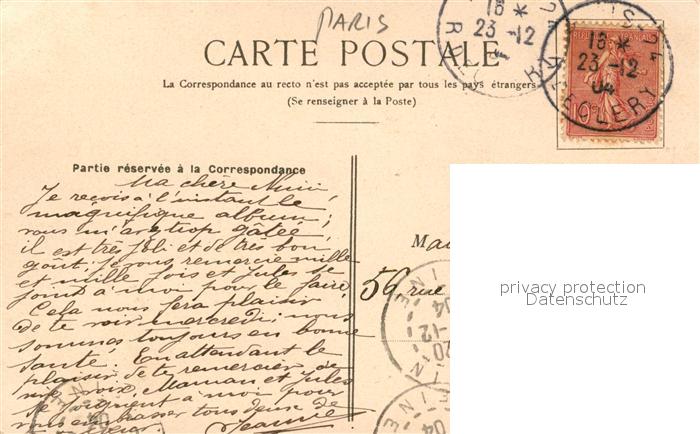 PARIS
CARTE POSTALE
La Correspondance au recto n'est pas acceptée par tous les pays étrangers
(Se renseigner à la Poste)
16 *
23 -12
16 *
23 -12
04
R. CLERY
10c
Partie réservée à la Correspondance
Ma chère Mimi,
Je reçois à l'instant le
magnifique album;
vous m'avez trop gâtée,
il est très joli et de très bon
goût. Je vous remercie mille
et mille fois et Jules se
joint à moi pour le faire.
Cela nous fera plaisir
de te voir mercredi; nous
sommes toujours en bonne
santé. En attendant le
plaisir de te remercier de
vive voix, Maman et Jules
se joignent à moi pour
vous embrasser tous deux de
Jeanne
Ma
56 rue
privacy protection
Datenschutz